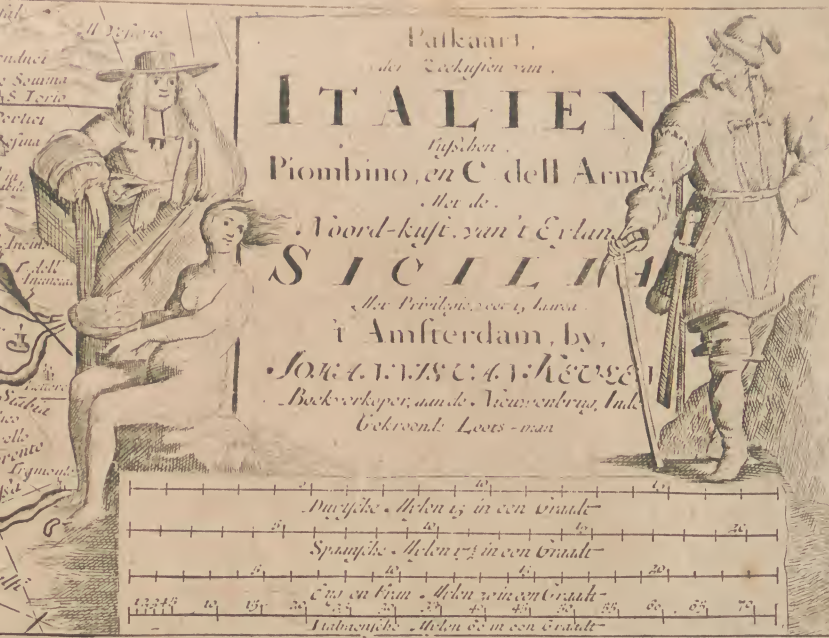 Paskaart,
der Zeekusten van,
ITALIEN
Tusschen,
Piombino, en C. dell Arme
Met de.
Noord-kust van't Eylan
SICILIA
Met Privilegie, voor 15 Iaren
't Amsterdam, by,
JOHANNIS VAN KEULEN
Boekverkoper, aan de Nieuwenbrug, Inde
Gekroonde Loots-man
5 10 15
Duytsche Melen 15 in een Graadt
5 10 15 20
Spaansche Melen 17½ in een Graadt
5 10 15 20
Eng en Fran Melen 20 in een Graadt
1 2 3 4 5 10 15 20 25 30 35 40 45 50 55 60 65 70
Italiaensche Melen 60 in een Graadt